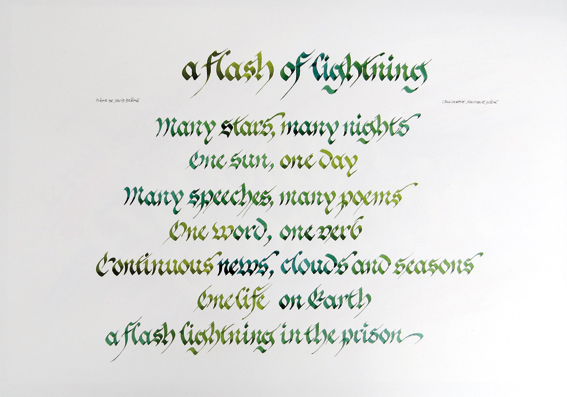 a flash of lightning
Many stars, many nights
One sun, one day
Many speeches, many poems
One word, one verb
Continuous news, clouds and seasons
One life on Earth
a flash lightning in the prison